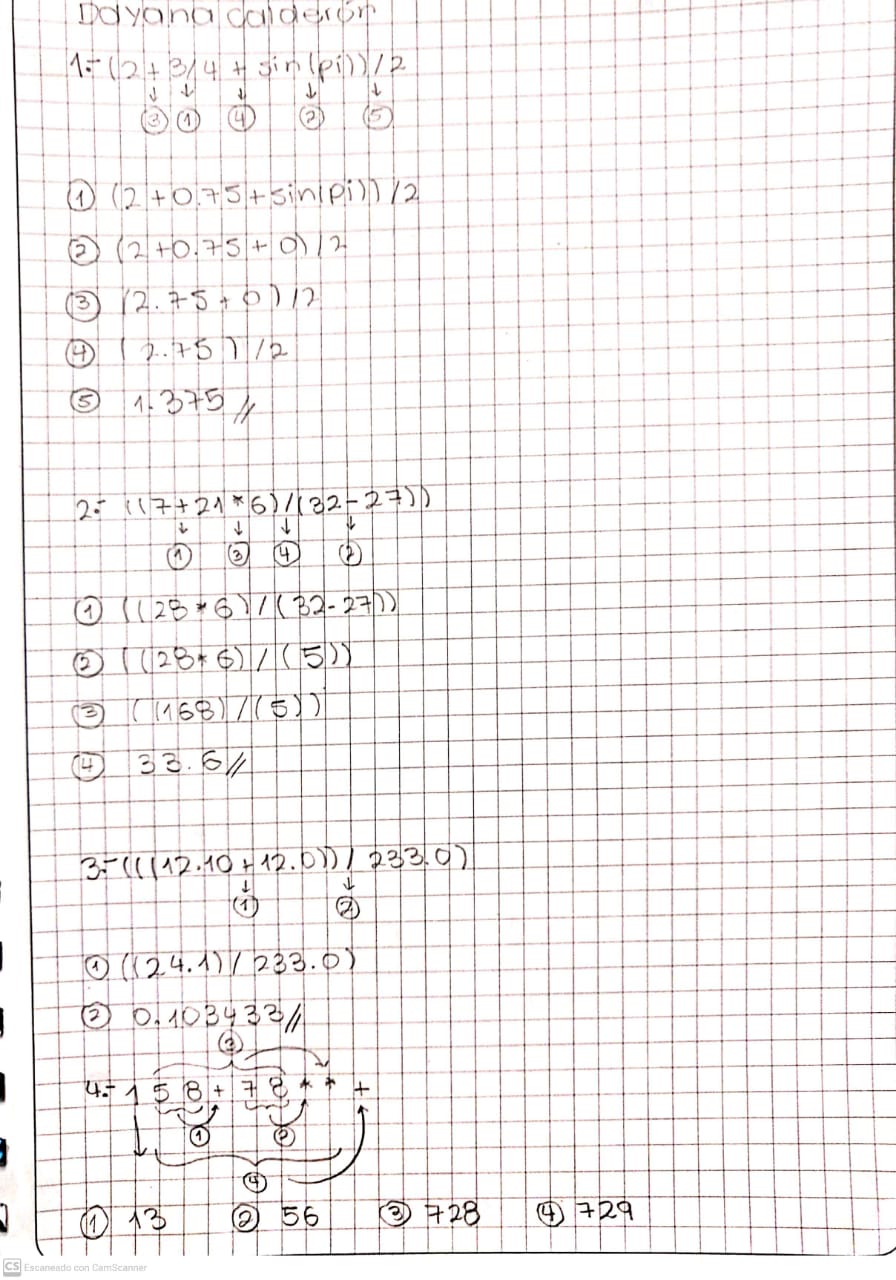 Dayana Calderón
1.- (2 + 3/4 + sin(pi))/2
③ ① ④ ② ⑤
① (2 + 0.75 + sin(pi))/2
② (2 + 0.75 + 0)/2
③ (2.75 + 0)/2
④ (2.75)/2
⑤ 1.375//
2.- ((7+21*6)/(32-27))
① ③ ④ ②
① ((28*6)/(32-27))
② ((28*6)/(5))
③ ((168)/(5))
④ 33.6//
3.- (((12.10+12.0))/233.0)
① ②
① ((24.1)/233.0)
② 0.103433//
③
4.- 1 5 8 + 7 8 * * +
① ②
④
① 13 ② 56 ③ 728 ④ 729
CS Escaneado con CamScanner